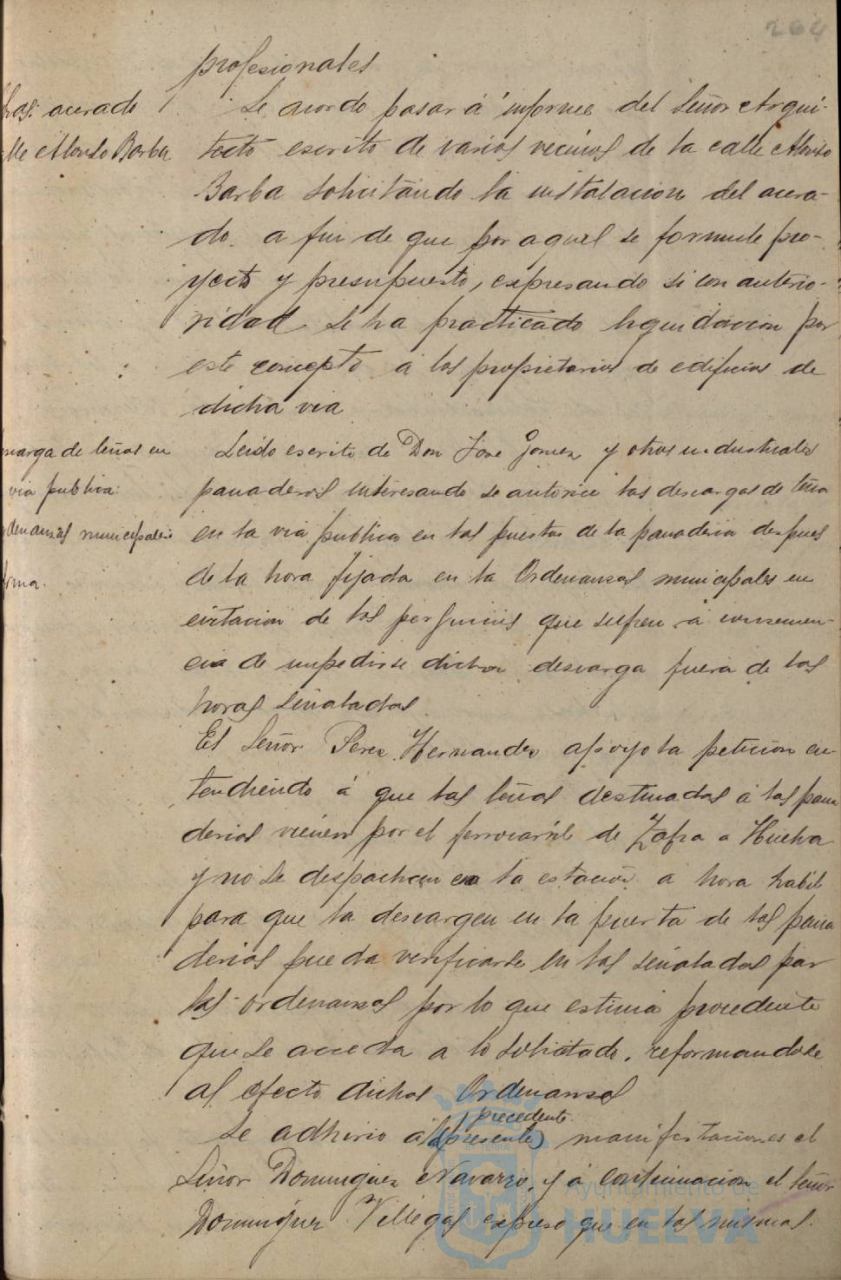 264
profesionales
acerado
Alonso Barba
Se acordo pasar á informe del Señor Arqui-
tecto escrito de varios vecinos de la calle Alonso
Barba solicitando la instalacion del acera-
do. a fin de que por aquel se formule pro-
yecto y presupuesto, expresando si con anterio-
ridad se ha practicado liquidacion por
este concepto á los propietarios de edificios de
dicha via
carga de leñas en
via publica.
denanzas municipales
Leido escrito de Don Jose Gomez y otros industriales
panaderos interesando se autorice las descargas de leña
en la via publica en las puertas de la panaderia despues
de la hora fijada en la Ordenansas municipales en
evitacion de los perjuicios que sufren á consecuen-
cia de impedirse dicha descarga fuera de las
horas señaladas.
El Señor Perez Hernandez apoyo la peticion en-
tendiendo á que las leñas destinadas á las pana
derias vienen por el ferrocarril de Zafra a Huelva
y no se despachan en la estacion a hora habil
para que la descargen en la puerta de las pana
derias pueda verificarse en las señaladas por
las ordenansas por lo que estima procedente
que se acceda a lo solicitado, reformandose
al efecto dichas Ordenansas
precedente
Se adhirio a (presente) manifestaciones el
Señor Dominguez Navarro, y á continuacion el Señor
Dominguez Villegas expreso que en las mismas.
Ayuntamiento de
HUELVA